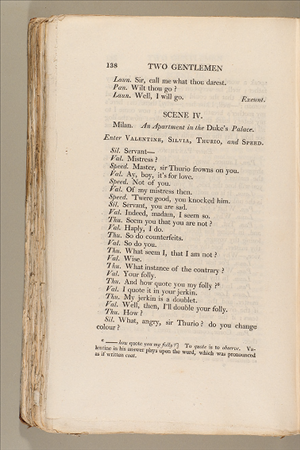 138 TWO GENTLEMEN
Laun. Sir, call me what thou darest.
Pan. Wilt thou go?
Laun. Well, I will go. Exeunt.
SCENE IV.
Milan. An Apartment in the Duke's Palace.
Enter VALENTINE, SILVIA, THURIO, and SPEED.
Sil. Servant—
Val. Mistress?
Speed. Master, sir Thurio frowns on you.
Val. Ay, boy, it's for love.
Speed. Not of you.
Val. Of my mistress then.
Speed. 'Twere good, you knocked him.
Sil. Servant, you are sad.
Val. Indeed, madam, I seem so.
Thu. Seem you that you are not?
Val. Haply, I do.
Thu. So do counterfeits.
Val. So do you.
Thu. What seem I, that I am not?
Val. Wise.
Thu. What instance of the contrary?
Val. Your folly.
Thu. And how quote you my folly?*
Val. I quote it in your jerkin.
Thu. My jerkin is a doublet.
Val. Well, then, I'll double your folly.
Thu. How?
Sil. What, angry, sir Thurio? do you change
colour?
* —— how quote you my folly?] To quote is to observe. Va-
lentine in his answer plays upon the word, which was pronounced
as if written coat.